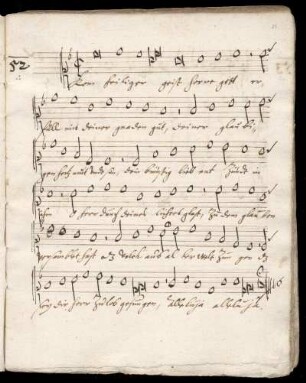 52
Kom heiliger geist herre gott er
füll mit deiner gnaden gut, deiner glaubi
gen hertz mut
dein brünstig lieb ent zünd in
ihn O herr durch deines liechtes glast, zu dem glauben
versamblet hast das Volck aus al der welt Zun gen das
sey dir herr zu lob gesungen, alleluja alleluja